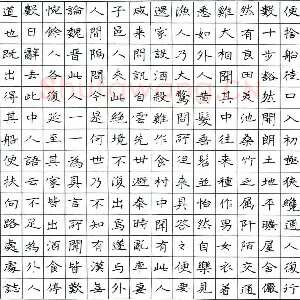 便捨船從口入初極狹纔通人復行
數十步豁然開朗土地平曠屋舍儼
然有良田美池桑竹之屬阡陌交通
雞犬相聞其中往來種作男女衣着
悉如外人黄髮垂髫並怡然自樂見
漁人乃大驚問所從來具答之便要
還家設酒殺雞作食村中聞有此人
咸來問訊自云先世避秦時亂率妻
子邑人來此絕境不復出焉遂與外
人間隔問今是何世乃不知有漢無
論魏晉此人一一爲具言所聞皆歎
悦餘人各復延至其家皆出酒食停
數日辭去此中人語云不足爲外人
道也既出得其船便扶向路處處誌